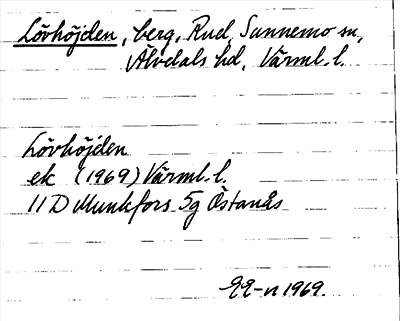 Lövhöjden, berg, Rud, Sunnemo sn,
Älvdals hd, Värml. l.
Lövhöjden
ek (1969) Värml. l.
11 D Munkfors 5g Östanås
1969.